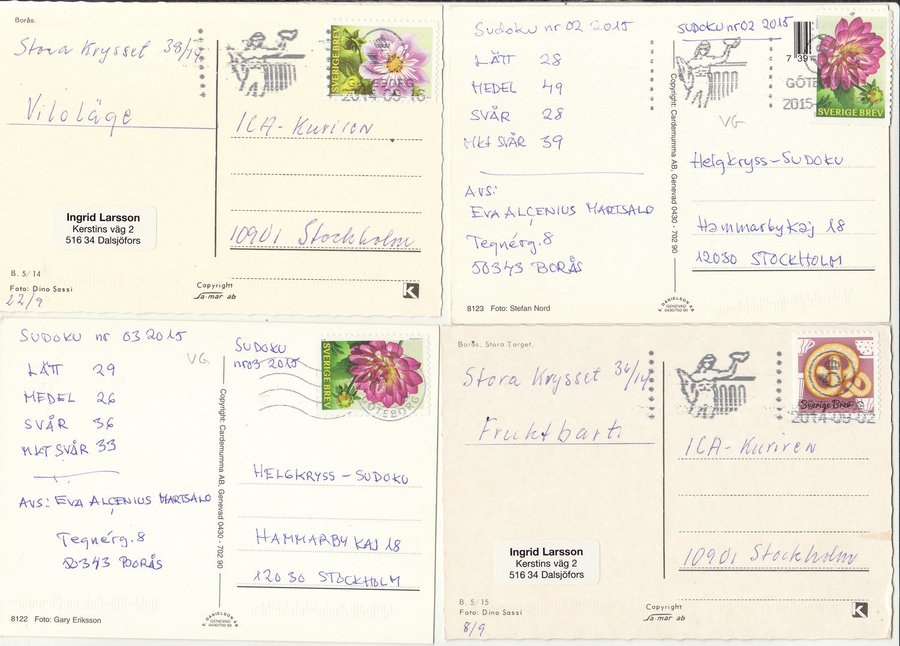 Borås.
Stora Krysset 38/14
Viloläge
SVERIGE BREV
2014-09-16
ICA-Kuriren
10901 Stockholm
Ingrid Larsson
Kerstins väg 2
516 34 Dalsjöfors
B. 5/14
Foto: Dino Sassi
22/9
Copyright
Sa-mar ab
K
Sudoku nr 02 2015
LÄTT 28
MEDEL 49
SVÅR 28
MKT SVÅR 39
AVS:
EVA ALÇENIUS MARTSALO
Tegnérg. 8
50343 BORÅS
8123 Foto: Stefan Nord
Copyright: Cardemumma AB, Genevad 0430 - 702 90
SUDOKU nr 02 2015
7 39
GÖTEB
2015-
SVERIGE BREV
VG
Helgkryss-SUDOKU
Hammarbykaj 18
12030 STOCKHOLM
DANIELSON
GENEVAD
0430/702 90
SUDOKU nr 03 2015
VG
LÄTT 29
MEDEL 26
SVÅR 36
MKT SVÅR 33
AVS: EVA ALÇENIUS MARTSALO
Tegnérg. 8
50343 BORÅS
8122 Foto: Gary Eriksson
Copyright: Cardemumma AB, Genevad 0430 - 702 90
SUDOKU
nr03 2015
SVERIGE BREV
GÖTEBORG
HELGKRYSS-SUDOKU
HAMMARBY KAJ 18
120 30 STOCKHOLM
DANIELSON
GENEVAD
0430/702 90
Borås. Stora Torget.
Stora Krysset 36/14
Fruktbart
Sverige Brev
2014-09-02
ICA-Kuriren
10901 Stockholm
Ingrid Larsson
Kerstins väg 2
516 34 Dalsjöfors
B. 5/15
Foto: Dino Sassi
8/9
Copyright
Sa-mar ab
K